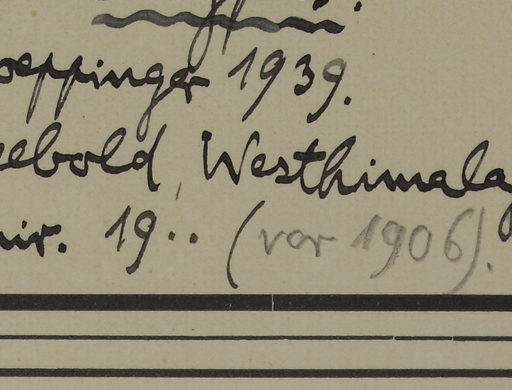 oeppinger 1939.
eebold Westhimala
ir. 19.. (vor 1906).